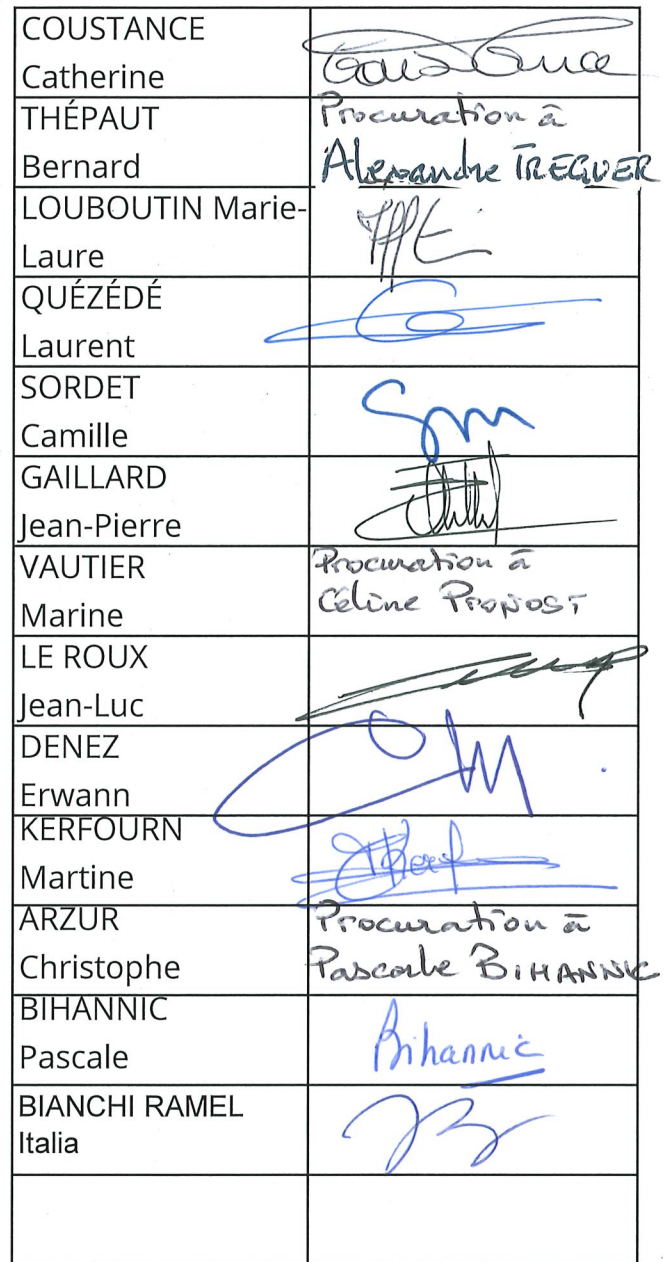 COUSTANCE
Catherine
Coustance
THÉPAUT
Bernard
Procuration à
Alexandre TREGUER
LOUBOUTIN Marie-
Laure
QUÉZÉDÉ
Laurent
SORDET
Camille
GAILLARD
Jean-Pierre
VAUTIER
Marine
Procuration à
Céline PROVOST
LE ROUX
Jean-Luc
DENEZ
Erwann
KERFOURN
Martine
ARZUR
Christophe
Procuration à
Pascale BIHANNIC
BIHANNIC
Pascale
Bihannic
BIANCHI RAMEL
Italia